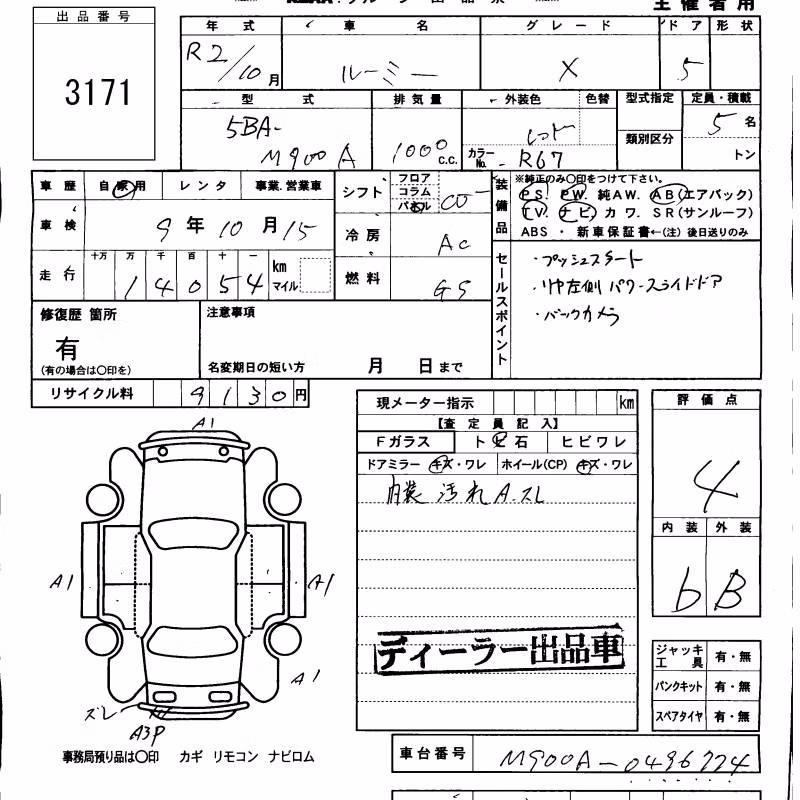 主催者用
出品番号
3171
年式 車名 グレード ドア 形状
R2/10月 ルーミー X 5
型式 排気量 外装色 色替 型式指定 定員・積載
5BA-M900A 1000c.c. レッド 類別区分 5名
カラーNo. R67 トン
車歴 自家用 レンタ 事業.営業車
シフト フロア コラム パネル
車検 9年10月15
冷房 AC
走行 十万 万 千 百 十 一 km マイル
14054
燃料 GS
装備品 ※純正のみ〇印をつけて下さい。
PS. PW. 純AW. AB(エアバック)
TV. ナビ カワ. SR(サンルーフ)
ABS ・ 新車保証書←(注) 後日送りのみ
セールスポイント
・プッシュスタート
・リヤ左側 パワースライドドア
・バックカメラ
修復歴 箇所
有
(有の場合は〇印を)
注意事項
名変期日の短い方 月 日まで
リサイクル料 9130円
現メーター指示 km
【査定員記入】
Fガラス トビ石 ヒビワレ
ドアミラー キズ・ワレ ホイール(CP) キズ・ワレ
内装 汚れ A.スレ
評価点
4
内装 外装
b B
A1
A1
A1
A1
ズレ
A3P
ディーラー出品車
ジャッキ工具 有・無
パンクキット 有・無
スペアタイヤ 有・無
事務局預り品は〇印 カギ リモコン ナビロム
車台番号 M900A-0496774